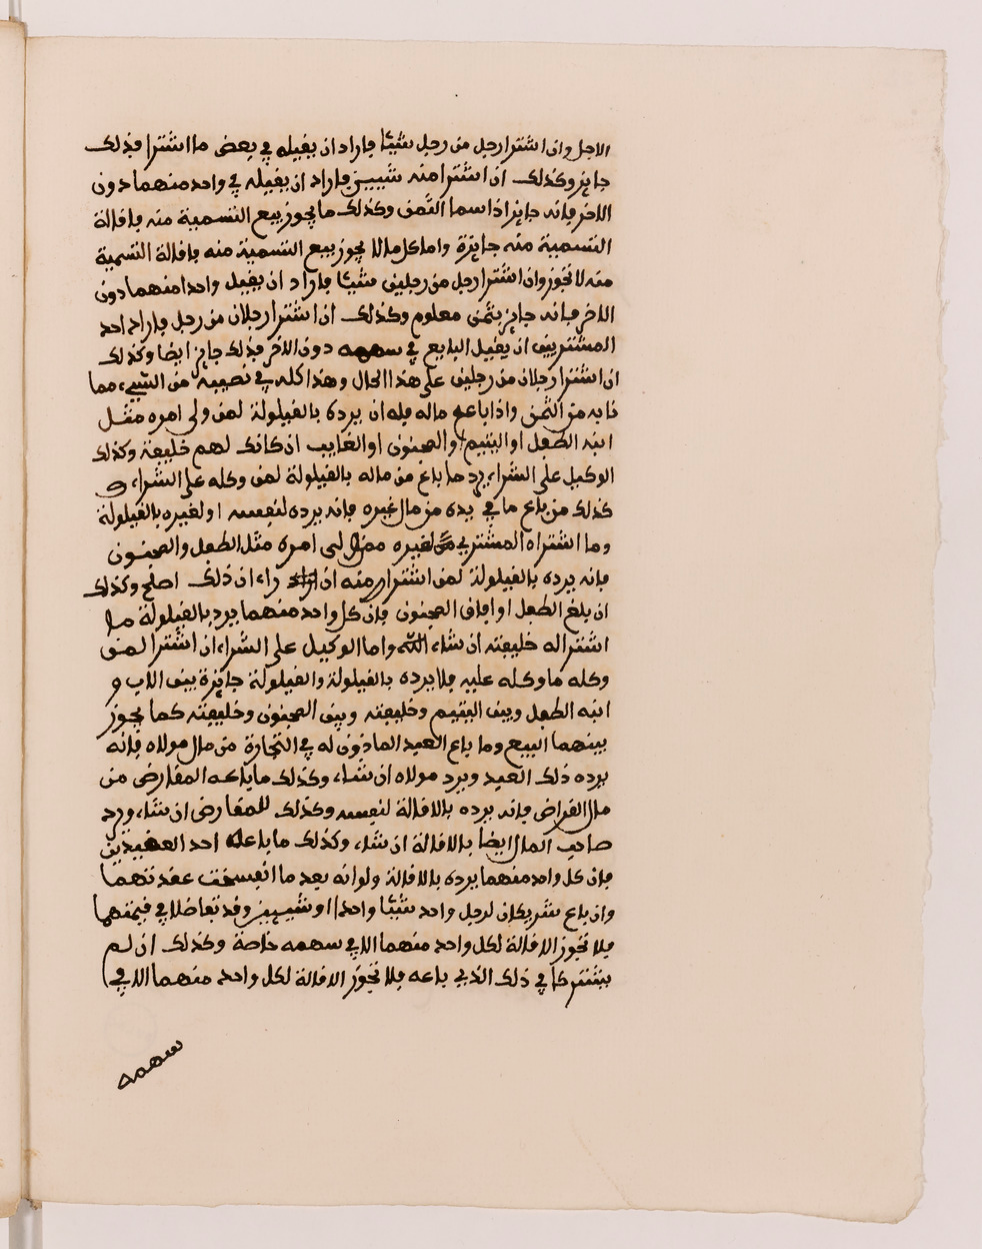 الاجل وان اشترا رجل من رجل شيئا فاراد ان يقيله في بعض ما اشترا فذلك
جايز وكذلك ان اشترا منه شييين فاراد ان يقيله في واحد منهما دون
الاخر فانه جايز اذا سما الثمن وكذلك ما يجوز بيع التسمية منه فاقالة
التسمية منه جايزة واما كل ما لا يجوز بيع التسمية منه فاقالة التسمية
منه لا تجوز وان اشترا رجل من رجلين شيئا فاراد ان يقيل واحدا منهما دون
الاخر فانه جايز بثمن معلوم وكذلك ان اشترا رجلان من رجل فاراد احد
المشتريين ان يقيل البايع في سهمه دون الاخر فذلك جايز ايضا وكذلك
ان اشترا رجلان من رجلين على هذا الحال وهذا كله في نصيبه من الشيء مما
نابه من الثمن واذا باع ماله فله ان يرده بالقيلولة لمن ولي امره مثل
ابنه الطفل او اليتيم او المجنون او الغايب ان كانت لهم خليفة وكذلك
الوكيل على الشراء يرد ما باع من ماله بالقيلولة لمن وكله على الشراء و
كذلك من باع ما في يده من مال غيره فانه يرده لنفسه او لغيره بالقيلولة
وما اشتراه المشتري لغيره ممن ولي امره مثل الطفل والمجنون
فانه يرده بالقيلولة لمن اشترا منه ان راء ان ذلك اصلح وكذلك
ان بلغ الطفل او افاق المجنون فان كل واحد منهما يرد بالقيلولة ما
اشترا له خليفته ان شاء الله واما الوكيل على الشراء ان اشترا لمن
وكله ما وكله عليه فلا يرده بالقيلولة والقيلولة جايزة بين الاب و
ابنه الطفل وبين اليتيم وخليفته وبين المجنون وخليفته كما يجوز
بينهما البيع وما باع العبد الماذون له في التجارة من مال مولاه فانه
يرده ذلك العبد ويرد مولاه ان شاء وكذلك ما باعه المقارض من
مال القراض فانه يرده بالاقالة لنفسه وكذلك للمقارض ان شاء ورد
صاحب المال ايضا بالاقالة ان شاء وكذلك ما باعه احد العقيدين
فان كل واحد منهما يرده بالاقالة ولو انه بعد ما انفسخت عقدتهما
وان باع شريكان لرجل واحد شيئا واحدا او شييين وقد تفاضلا في قيمتهما
فلا تجوز الاقالة لكل واحد منهما الا في سهمه خاصة وكذلك ان لم
يشتركا في ذلك الذي باعه فلا تجوز الاقالة لكل واحد منهما الا في
سهمه